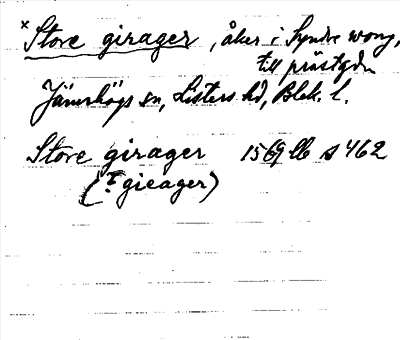 × Store girager, åker i Syndre wong,
till prästgdn
Jämshögs sn, Listers hd, Blek. l.
Store girager 1569 lb s 462
(? gieager)